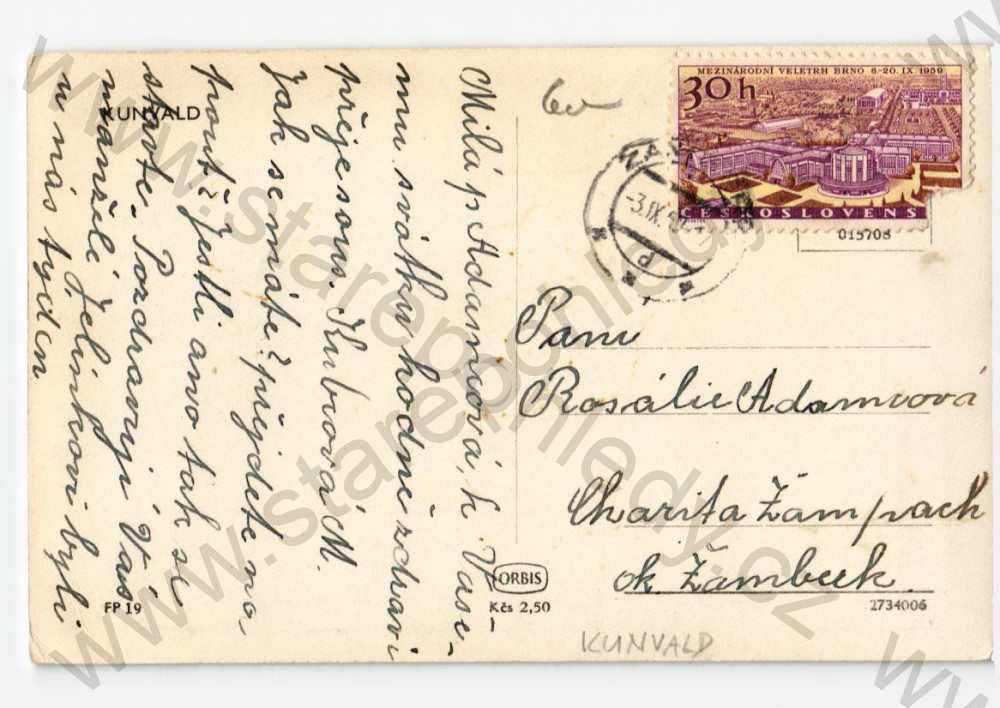 KUNVALD
Milá p Adamcová, k Vaše-
mu svátku hodně zdraví
přeje sous. Kubcová čM.
Jak se máte? přijdete na
pout? Jestli ano tak se
stavte. Pozdravují Vás
manželé Jelínkovi byli
u nás týden
FP 19
MEZINÁRODNÍ VELETRH BRNO 6.-20. IX 1959
30 h
ČESKOSLOVENS
-3.IX
015708
Paní
Rosálie Adamcová
Charita Žampach
ok Žamberk.
ORBIS
Kčs 2,50
2734006
KUNVALD
www.starepohledy.cz
www.starepohledy.cz